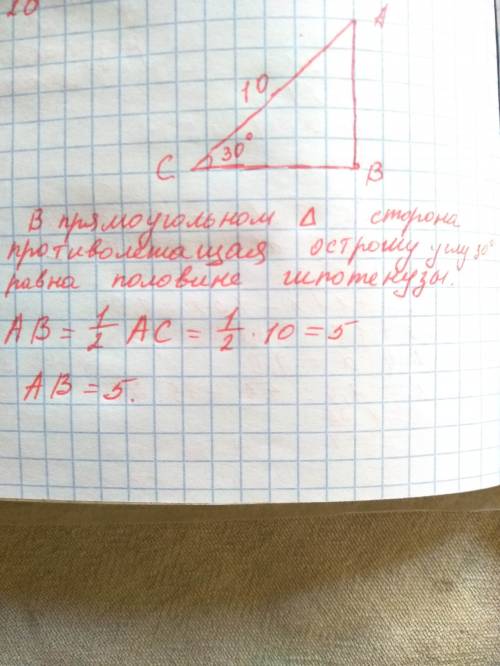 20
A
10
C 30° B
В прямоугольном Δ сторона
противолежащая острому углу 30°
равна половине гипотенузы.
AB = 1/2 AC = 1/2 · 10 = 5
AB = 5.